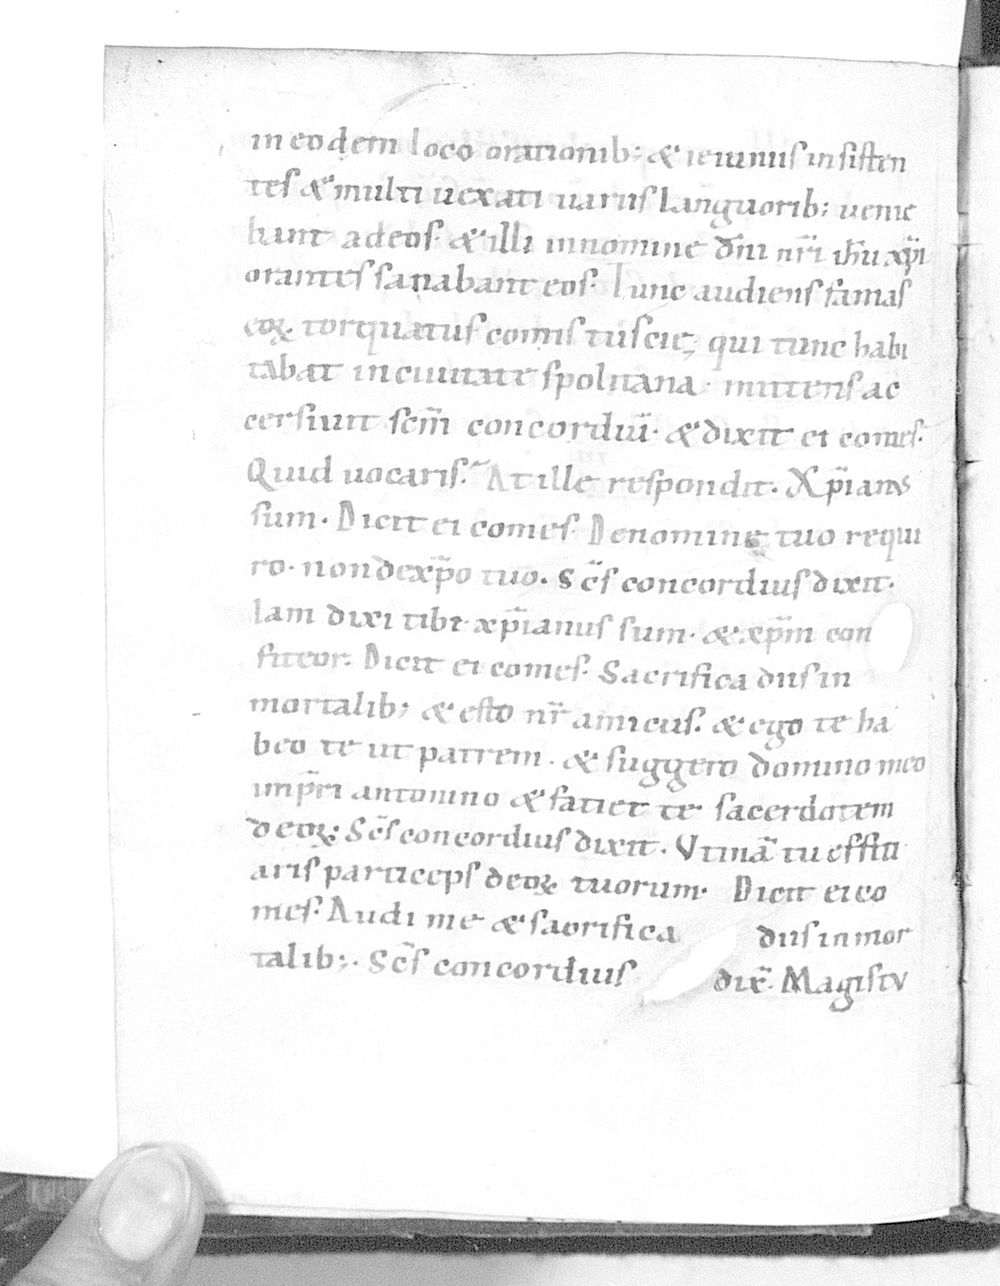 in eodem loco orationib; & ieiuniis insisten
tes & multi uexati uariis languorib; uenie
bant ad eos. & illi in nomine dñi nr̃i ihũ xp̃i
orantes sanabant eos. Tunc audiens famas
eoꝝ torquatus comis tuscię, qui tunc habi
tabat in ciuitate spolitana. mittens ac
cersiuit scm̃ concordiũ. & dixit ei comes.
Quid uocaris. At ille respondit. Xp̃ianus
sum. Dicit ei comes. De nomine tuo requi
ro. non de xp̃o tuo. Sc̃s concordius dixit.
Iam dixi tibi xp̃ianus sum. & xp̃m con
fiteor. Dicit ei comes. Sacrifica diis in
mortalib; & esto nr̃ amicus. & ego te ha
beo te ut patrem. & suggero domino meo
imp̃ri antonino & faciet te sacerdotem
deoꝝ. Sc̃s concordius dixit. Vtinã tu effici
aris particeps deoꝝ tuorum. Dicit ei co
mes. Audi me & sacrifica diis in mor
talib;. Sc̃s concordius dix̃. Magis tv